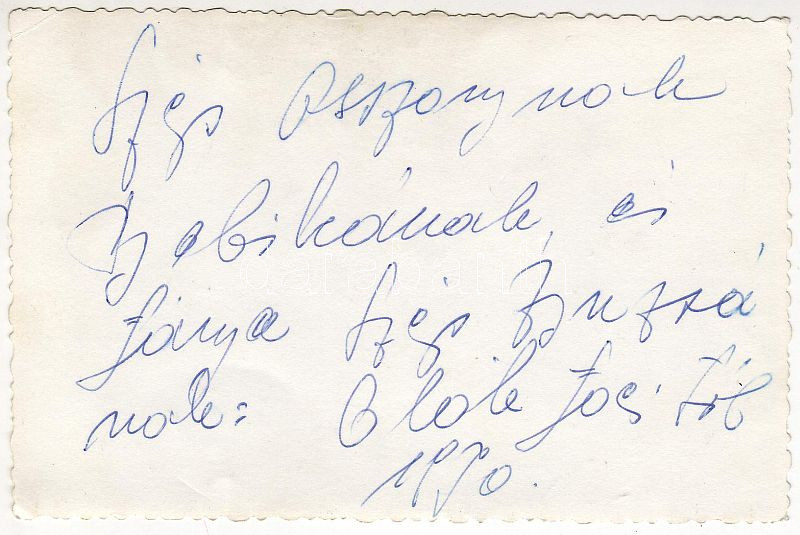 Szép Asszonynak
Szabikának, és
lánya Szép Zsuzsá
nak: Oláh Joci Tól
1970.